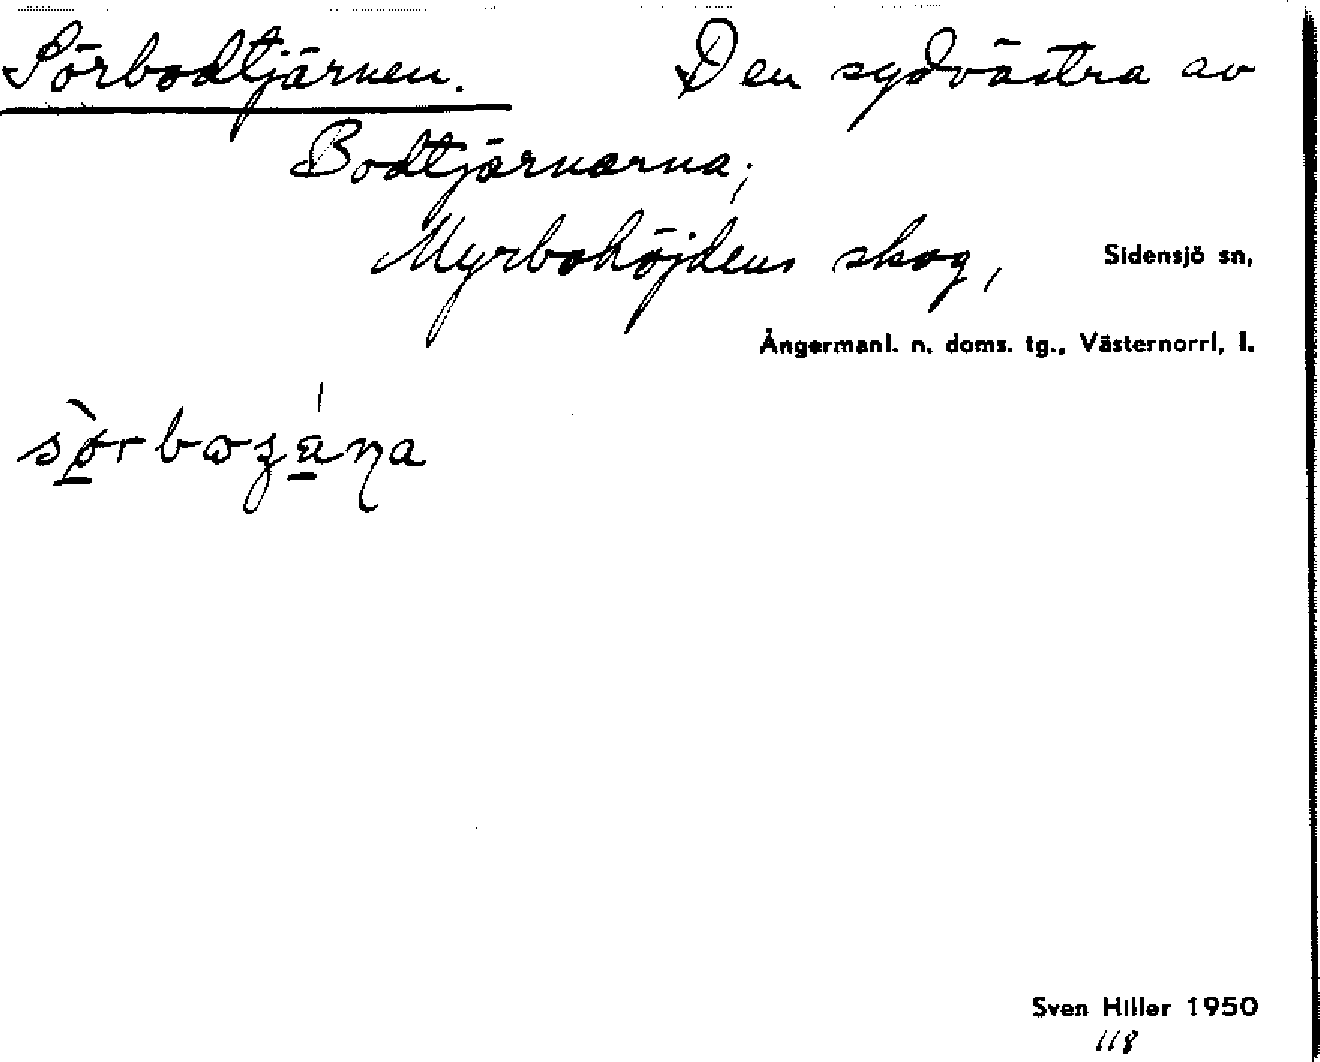 Sörbodtjärnen. Den sydvästra av
Bodtjärnarna;
Myrbohöjdens skog, Sidensjö sn,
Ångermanl. n. doms. tg., Västernorrl, l.
Sven Hiller 1950
118